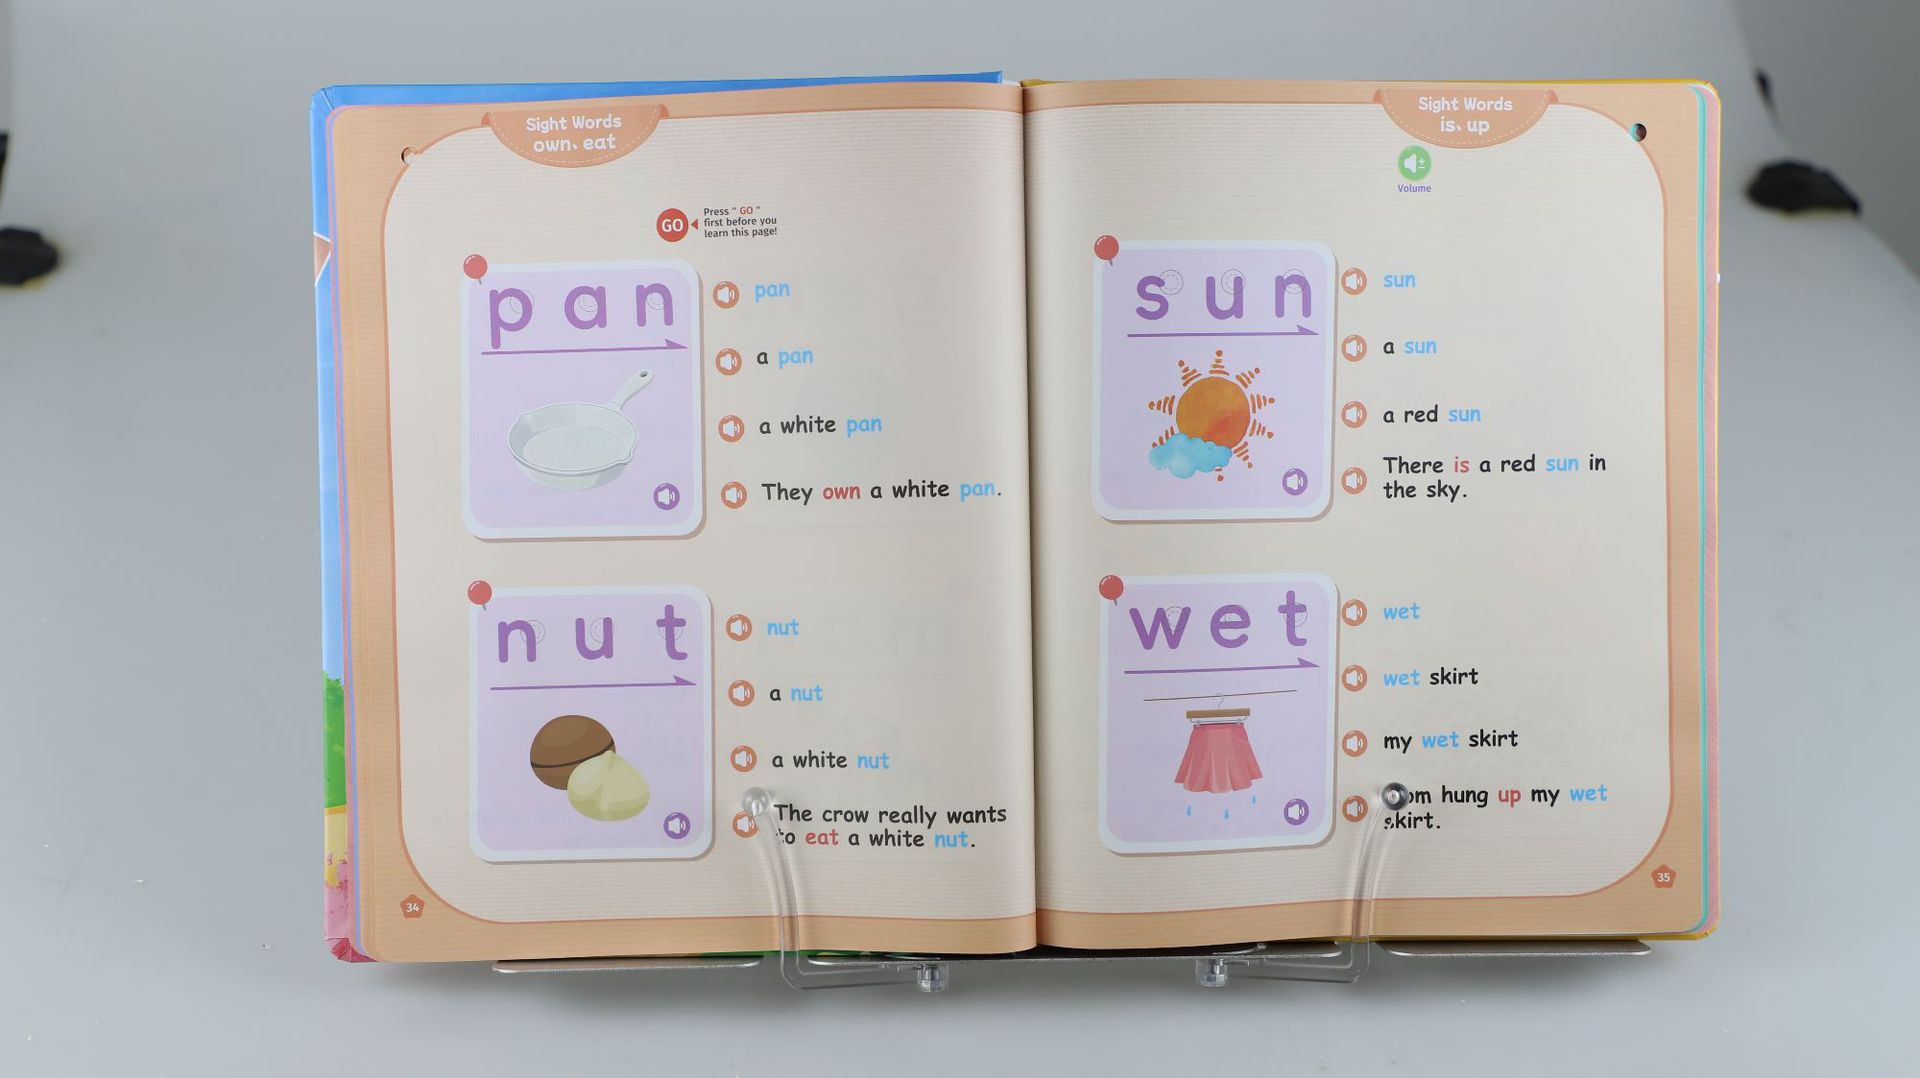 Sight Words
own、eat
GO
Press " GO "
first before you
learn this page!
pan
pan
a pan
a white pan
They own a white pan.
nut
nut
a nut
a white nut
The crow really wants
to eat a white nut.
34
Sight Words
is、up
Volume
sun
sun
a sun
a red sun
There is a red sun in
the sky.
wet
wet
wet skirt
my wet skirt
hung up my wet
skirt.
35